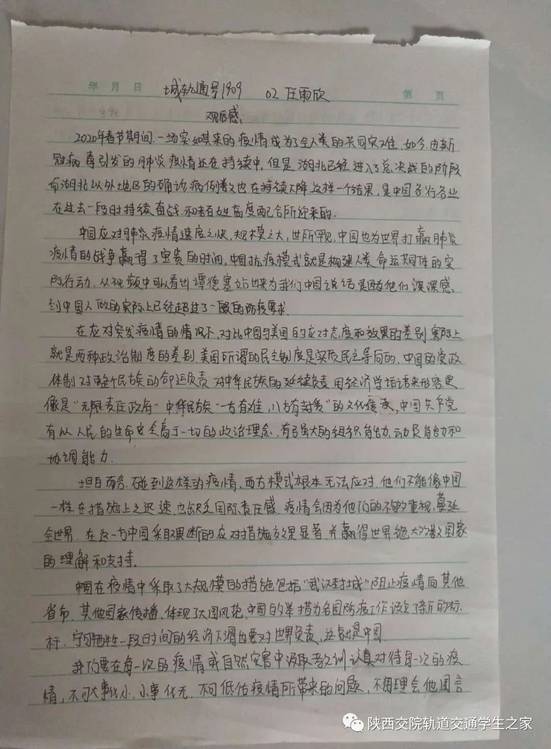 年 月 日 城轨通号1909 02 汪雨欣 第 页
观后感
2020年春节期间,一场突如其来的疫情成为了全人类的共同灾难,如今,由新
冠病毒引发的肺炎疫情还在持续中,但是湖北已经进入了总决战的阶段
而湖北以外地区的确诊病例数也在持续下降,这样一个结果,是中国各行各业
在过去一段时持续奋战,和老百姓高度配合所迎来的.
中国应对肺炎疫情速度之快,规模之大,世所罕见,中国也为世界打赢肺炎
疫情的战争赢得了宝贵的时间,中国抗疫模式就是构建人类命运共同体的实
际行动,从视频中可以看出谭德塞站出来为我们中国说话是因为他们深深感
到中国人做的实际上已经超过了一般的防疫要求
在应对突发疫情的情况下,对比中国与美国的应对态度和效果的差别,实际上
就是两种政治制度的差别,美国所谓的民主制度是实质民主导向的,中国的
体制对整个民族的命运负责,对中华民族的延续负责,用经济学话语来形容更
像是"无限责任政府",中华民族"一方有难,八方支援"的文化传承,中国共产党
有以人民的生命安全高于一切的政治理念,有强大的组织能力,动员能力和
协调能力.
坦白而言,碰到这样的疫情,西方模式根本无法应对,他们不能像中国
一样在措施上之迅速,也缺乏国际责任感,疫情会因为他们的不够重视,蔓延
全世界,在这一方中国采取果断的应对措施效果显著,并赢得世界绝大多数国家
的理解和支持.
中国在疫情中采取了大规模的措施包括"武汉封城"阻止疫情向其他
省市,其他国家传播,体现了大国风范,中国的举措为各国防疫工作设立了新的标
杆,宁可牺牲一段时间的经济不得也要对世界负责,这就是中国
我们要在每一次的疫情或自然灾害中汲取教训,认真对待每一次的疫
情,不可大事化小,小事化无,不可低估疫情所带来的问题,不用理会他国言
陕西交院轨道交通学生之家